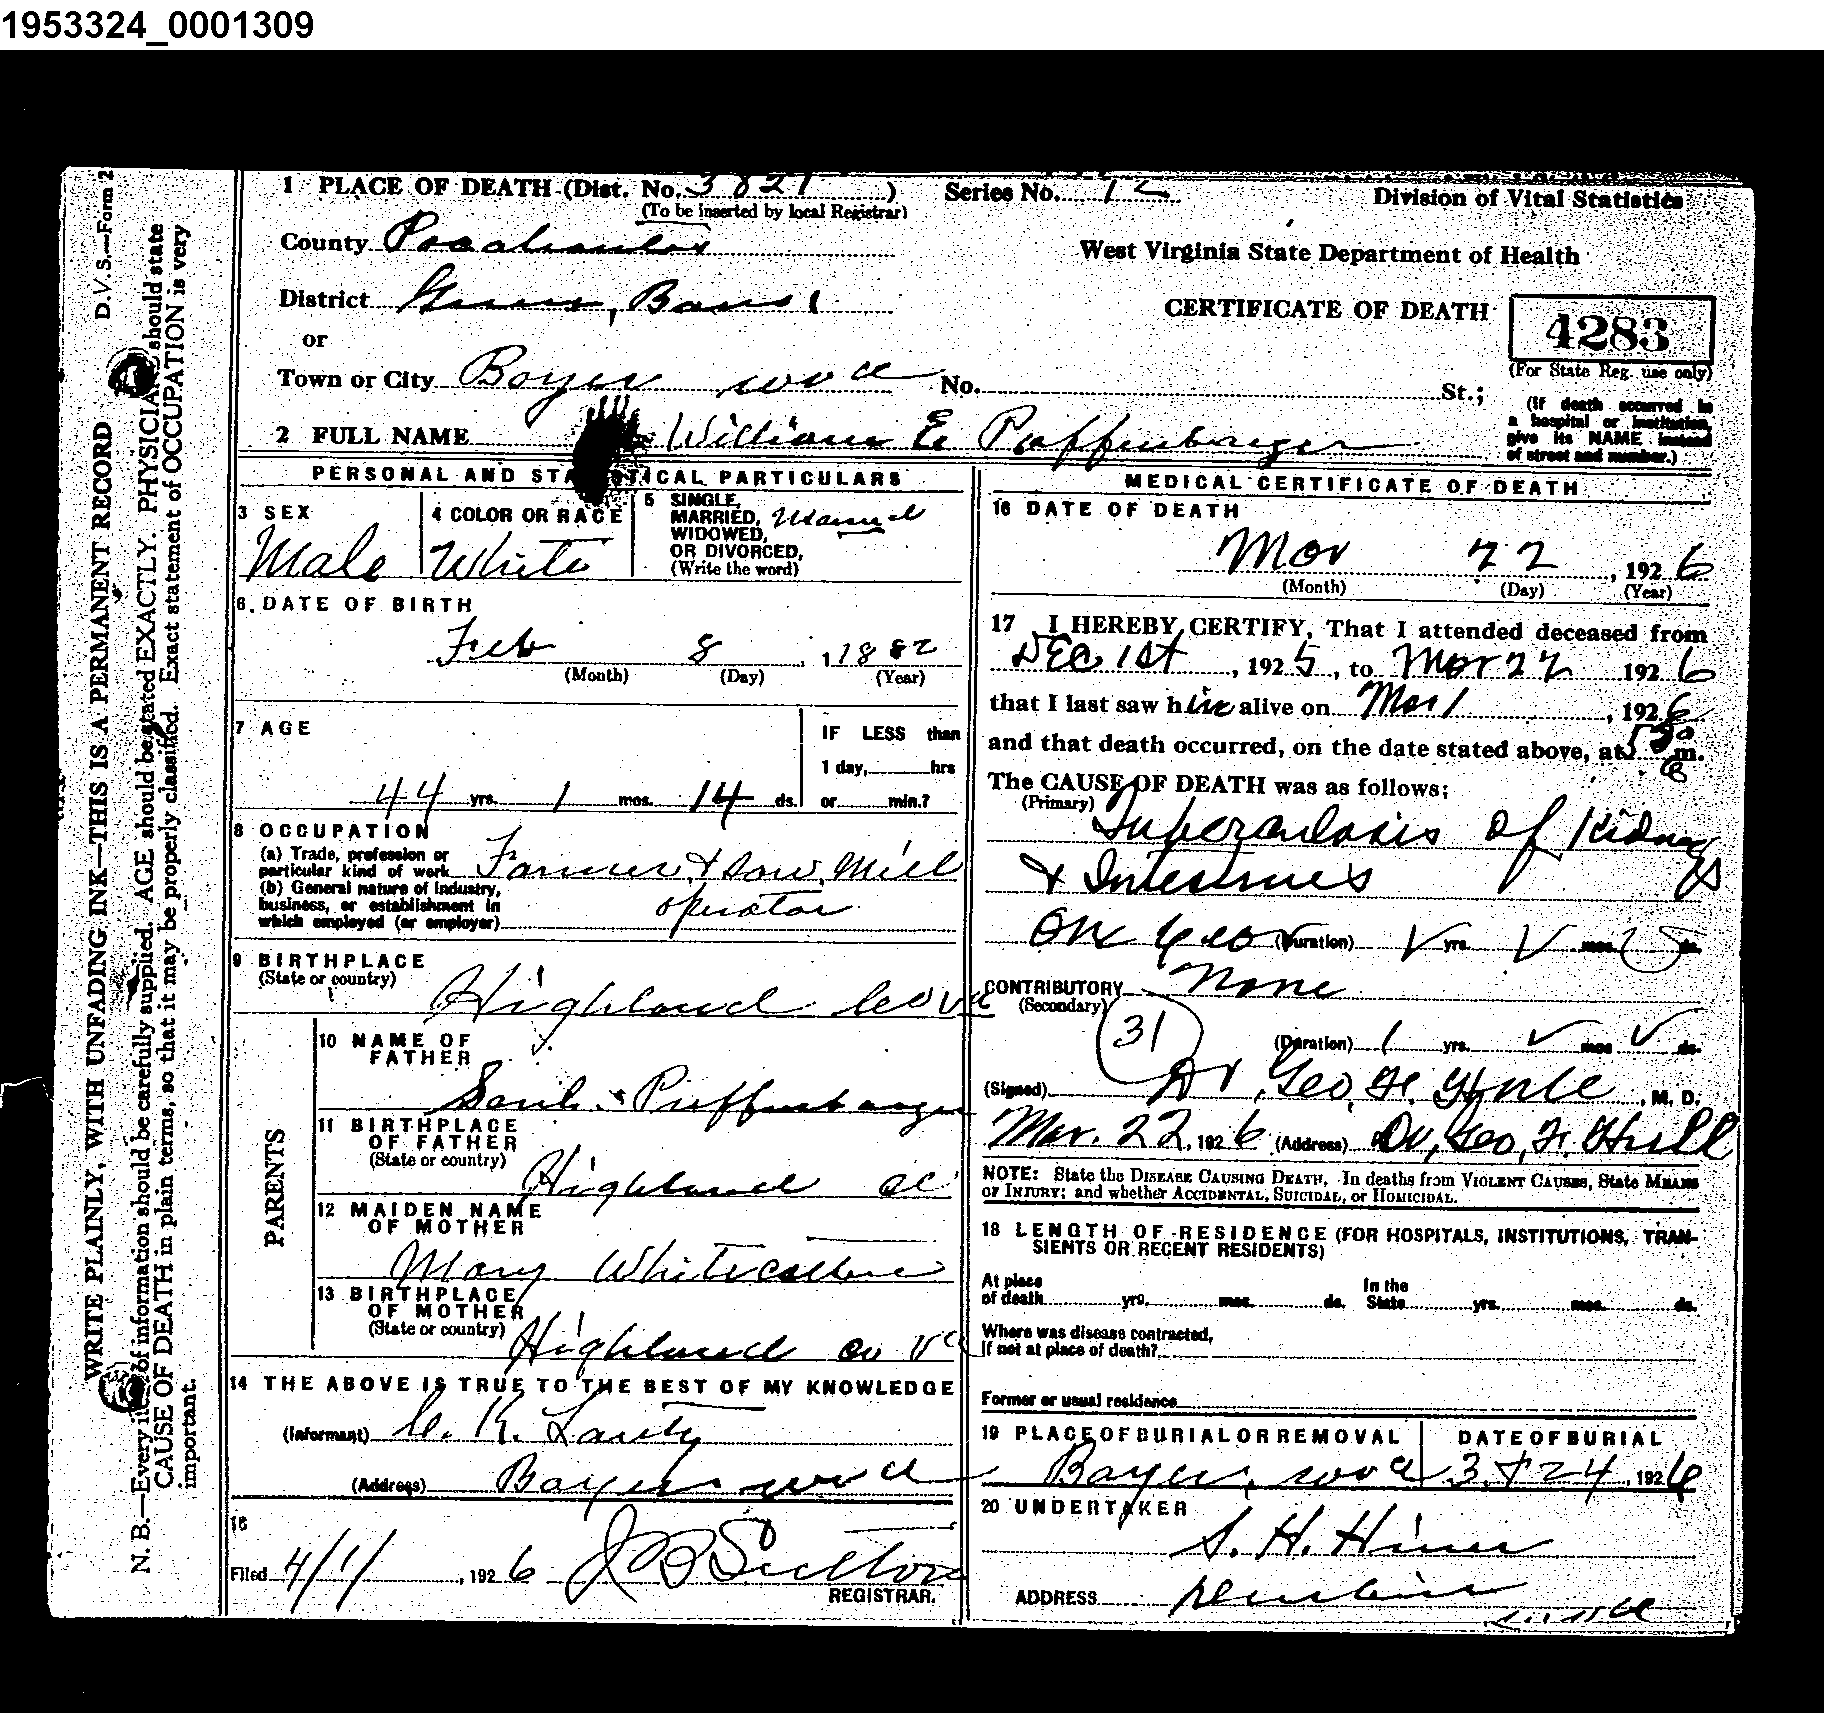 1953324_0001309
1 PLACE OF DEATH (Dist. No. 3821 ) Series No. 12 Division of Vital Statistics
(To be inserted by local Registrar)
County Pocahontas
West Virginia State Department of Health
District Green Bank
CERTIFICATE OF DEATH
4283
(For State Reg. use only)
or
Town or City Boyer W Va No. St.;
(If death occurred in
a hospital or institution,
give its NAME instead
of street and number.)
2 FULL NAME William E. Puffenbarger
PERSONAL AND STATISTICAL PARTICULARS
3 SEX
Male
4 COLOR OR RACE
White
5 SINGLE,
MARRIED,
WIDOWED,
OR DIVORCED,
(Write the word)
Married
6. DATE OF BIRTH
Feb 8, 1882
(Month) (Day) (Year)
7 AGE
44 yrs. 1 mos. 14 ds.
IF LESS than
1 day, hrs
or min.?
8 OCCUPATION
(a) Trade, profession or
particular kind of work Farmer & Saw Mill
(b) General nature of industry,
business, or establishment in
which employed (or employer) operator
9 BIRTHPLACE
(State or country)
Highland Co Va
PARENTS
10 NAME OF
FATHER
Puffenbarger
11 BIRTHPLACE
OF FATHER
(State or country)
Highland
12 MAIDEN NAME
OF MOTHER
Mary
13 BIRTHPLACE
OF MOTHER
(State or country)
Highland co Va
14 THE ABOVE IS TRUE TO THE BEST OF MY KNOWLEDGE
(Informant) C. K. Lantz
(Address) Boyer W Va
15
Filed 4/1/, 1926 J B Sutton
REGISTRAR.
MEDICAL CERTIFICATE OF DEATH
16 DATE OF DEATH
Mar 22, 1926
(Month) (Day) (Year)
17 I HEREBY CERTIFY, That I attended deceased from
Dec 1st, 1925, to Mar 22 1926
that I last saw him alive on Mar 1, 1926
and that death occurred, on the date stated above, at m.
The CAUSE OF DEATH was as follows:
(Primary)
Tuberculosis of Kidneys
& Intestines
One Year (Duration) yrs. mos. ds.
CONTRIBUTORY None
(Secondary)
31
(Duration) 1 yrs. mos. ds.
(Signed) Dr. Geo. F. Hull, M. D.
Mar. 22, 1926 (Address) Dr, Geo, F. Hull
NOTE: State the DISEASE CAUSING DEATH, In deaths from VIOLENT CAUSES, State MEANS
OF INJURY; and whether ACCIDENTAL, SUICIDAL, or HOMICIDAL.
18 LENGTH OF RESIDENCE (FOR HOSPITALS, INSTITUTIONS, TRAN-
SIENTS OR RECENT RESIDENTS)
At place
of death yrs. mos. ds.
In the
State yrs. mos. ds.
Where was disease contracted,
If not at place of death?
Former or usual residence
19 PLACE OF BURIAL OR REMOVAL
Boyer, W Va
DATE OF BURIAL
3 & 24, 1926
20 UNDERTAKER
S. H. Hiner
ADDRESS Durbin
W Va
D. V. S.—Form 2
WRITE PLAINLY, WITH UNFADING INK—THIS IS A PERMANENT RECORD
N. B.—Every item of information should be carefully supplied. AGE should be stated EXACTLY. PHYSICIANS should state
CAUSE OF DEATH in plain terms, so that it may be properly classified. Exact statement of OCCUPATION is very
important.